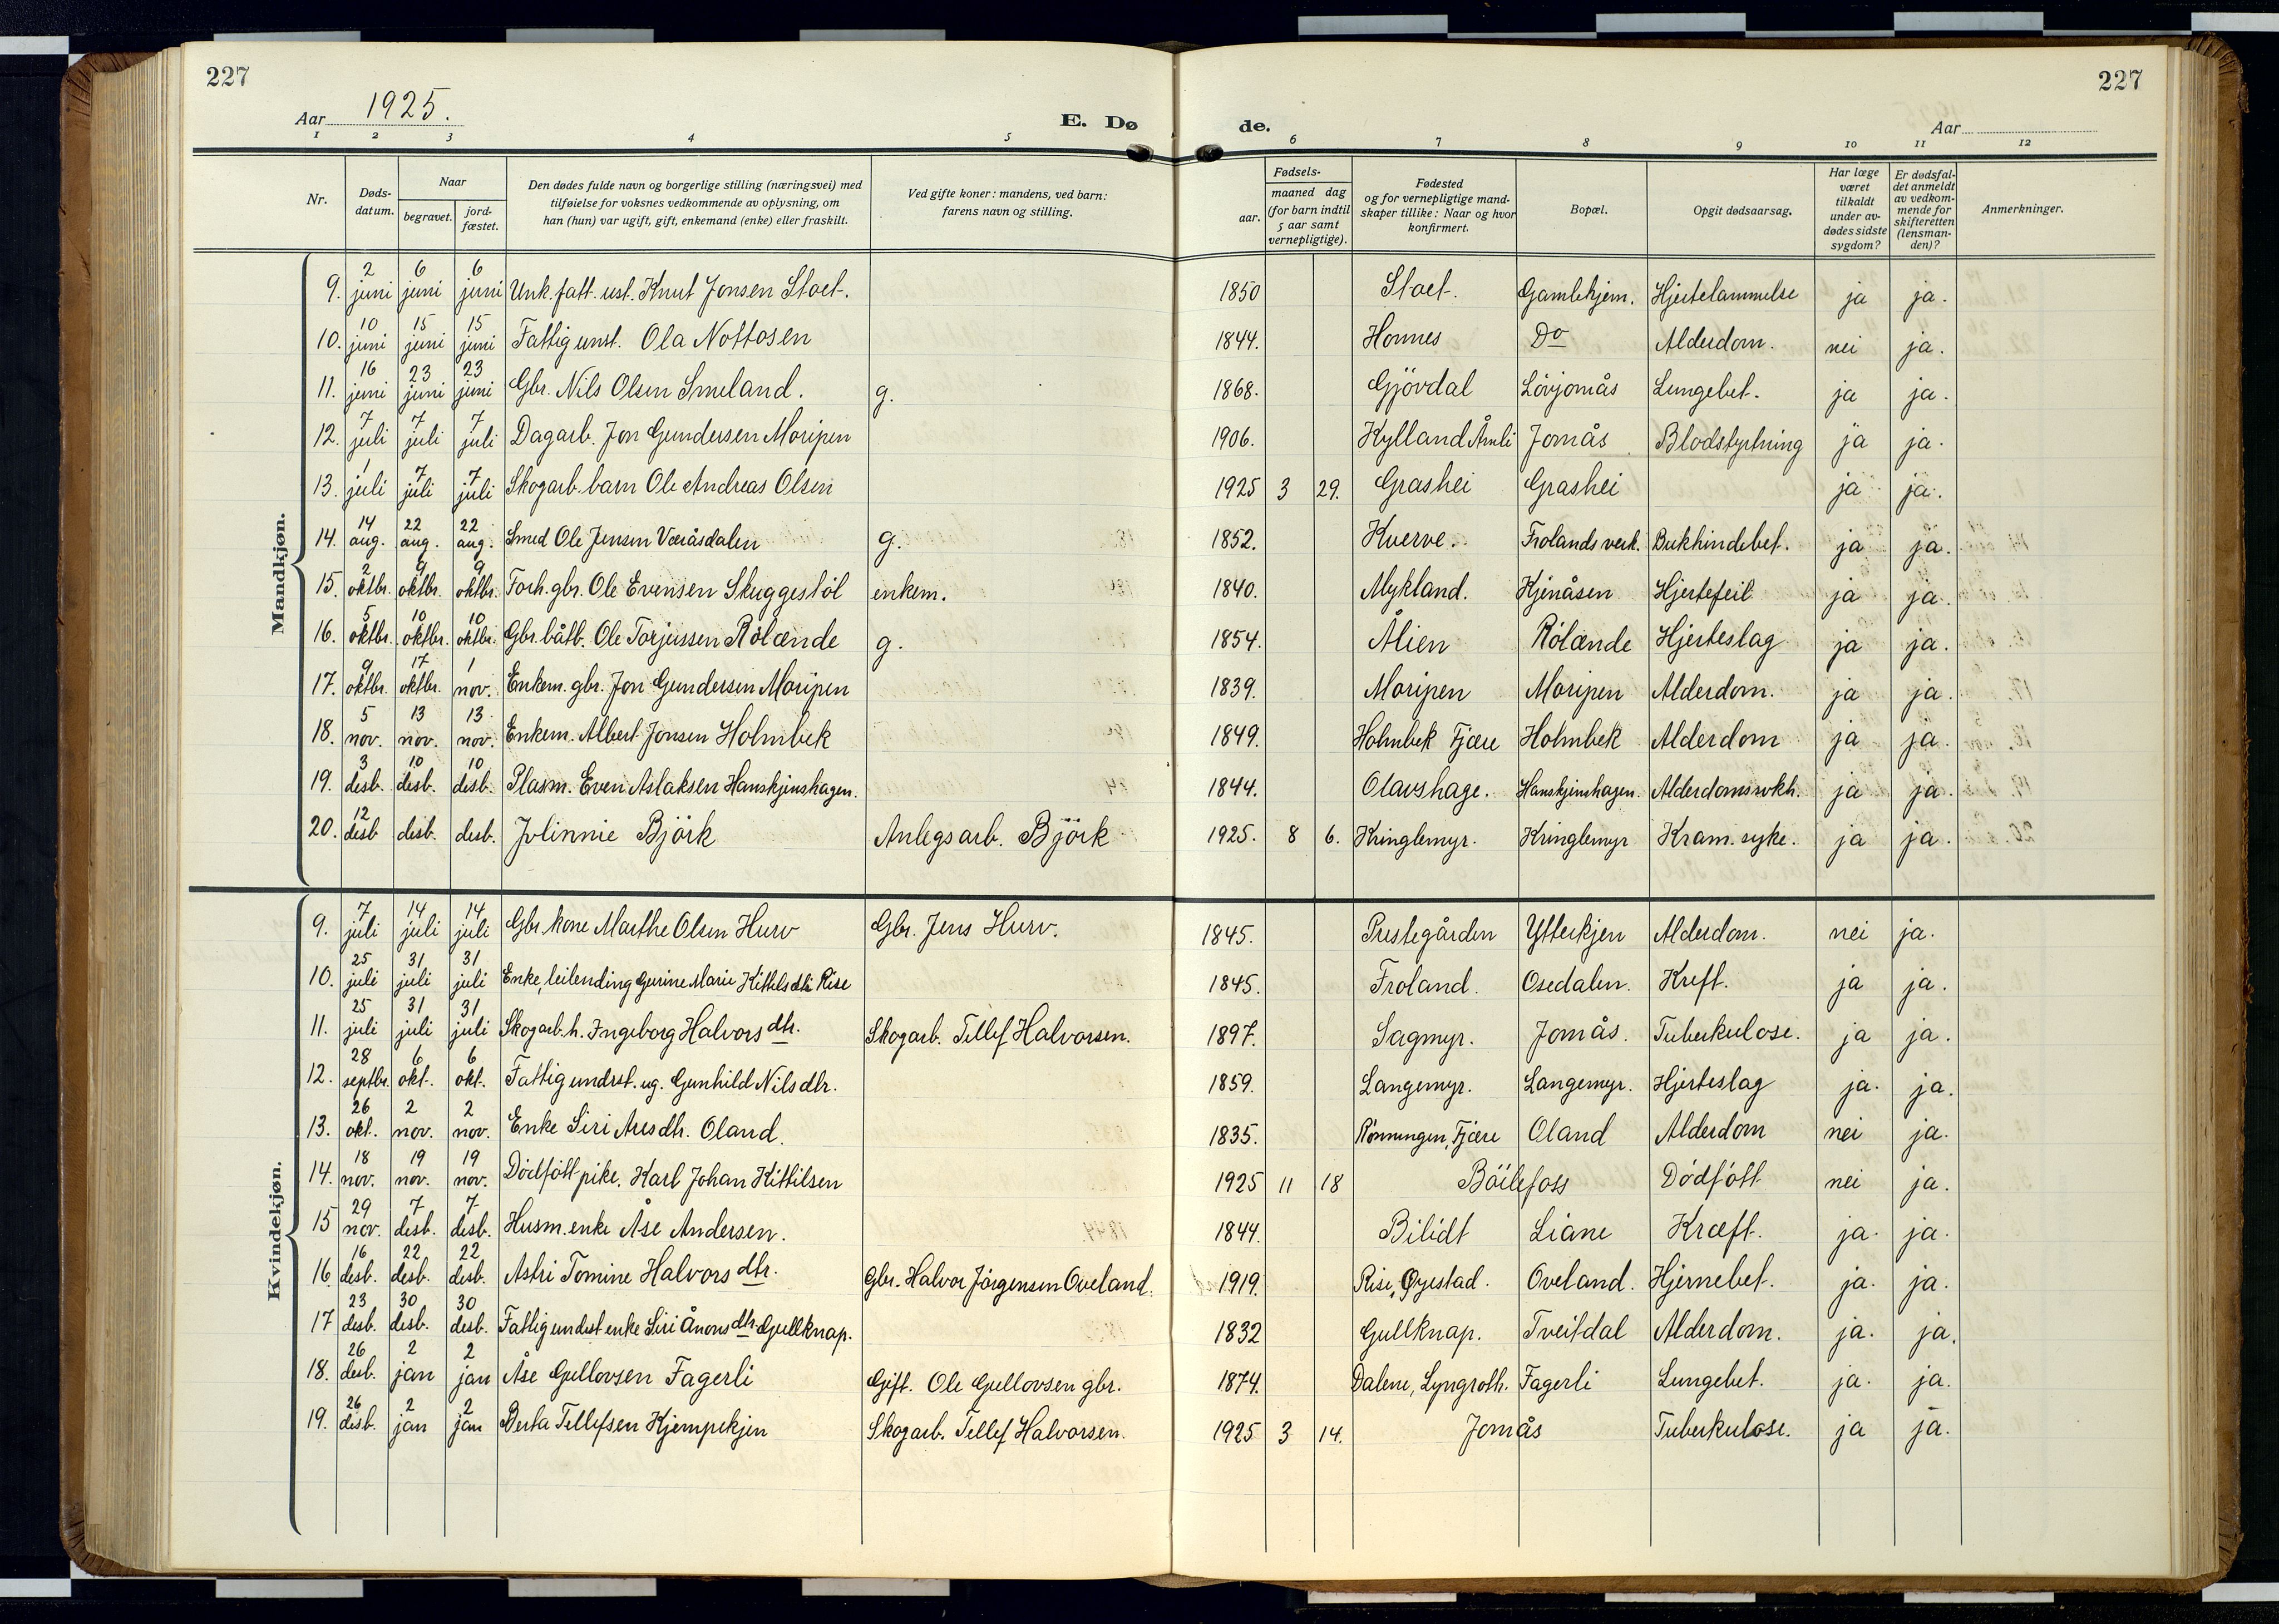 227
227
Aar 1925.
E. Dø
de.
Aar
1 2 3 4 5 6 7 8 9 10 11 12
Nr.
Døds-datum.
Naar
begravet.
jord-fæstet.
Den dødes fulde navn og borgerlige stilling (næringsvei) med tilføielse for voksnes vedkommende av oplysning, om han (hun) var ugift, gift, enkemand (enke) eller fraskilt.
Ved gifte koner: mandens, ved barn: farens navn og stilling.
Fødsels-
aar.
maaned dag
(for barn indtil 5 aar samt vernepligtige).
Fødested og for vernepligtige mand-skaper tillike: Naar og hvor konfirmert.
Bopæl.
Opgit dødsaarsag.
Har læge været tilkaldt under av-dødes sidste sygdom?
Er dødsfal-det anmeldt av vedkom-mende for skifteretten (lensman-den)?
Anmerkninger.
Mandkjøn.
9. 2 juni 6 juni 6 juni Unk. fatt. ust. Knut Jonsen Stoet. 1850 Stoet. Gamlehjem. Hjertelammelse ja ja.
10. 10 juni 15 juni 15 juni Fattigunst. Ola Nottosen 1844. Homnes Do Alderdom. nei ja.
11. 16 juni 23 juni 23 juni Gbr. Nils Olsen Smeland. g. 1868. Gjövdal Lövjomås Lungebet. ja ja.
12. 7 juli 7 juli 7 juli Dagarb. Jon Gundersen Moripen 1906. Kylland Åmli Jomås Blodstyrtning ja ja.
13. 1 juli 7 juli 7 juli Skogarb. barn Ole Andreas Olsen 1925 3 29. Grashei Grashei ja ja.
14. 14 aug. 22 aug. 22 aug. Smed Ole Jensen Væråsdalen g. 1852. Kverve. Frolands verk. Bukhindebet. ja ja.
15. 2 oktbr. 9 oktbr. 9 oktbr. Forh. gbr. Ole Evensen Skuggestöl enkem. 1840. Mykland. Kjenåsen Hjertefeil ja ja.
16. 5 oktbr. 10 oktbr. 10 oktbr. Gbr. båtb. Ole Torjussen Rölænde g. 1854. Ålien Rölænde Hjerteslag ja ja.
17. 9 oktbr. 17 oktbr. 1 nov. Enkem. gbr. Jon Gundersen Moripen 1839. Moripen Moripen Alderdom. ja ja.
18. 5 nov. 13 nov. 13 nov. Enkem. Albert Jonsen Holmbek 1849. Holmbek Fjære Holmbek Alderdom ja ja.
19. 3 desb. 10 desb. 10 desb. Plasm. Even Aslaksen Hanskjenshagen. 1844. Olavshage. Hanskjenshagen. Alderdomssvkh. ja ja.
20. 12 desb desb. desb. Jolinnie Björk Anlegsarb. Björk 1925. 8 6. Kringlemyr. Kringlemyr Kram. syke. ja ja.
Kvindekjøn.
9. 7 juli 14 juli 14 juli Gbr. kone Marthe Olsen Hurv Gbr. Jens Hurv. 1845. Prestegården Ytterkjen Alderdom. nei ja.
10. 25 juli 31 juli 31 juli Enke, leilending Gurine Marie Kittelsdtr Rise 1845. Froland. Osedalen. Kreft. ja ja.
11. 25 juli 31 juli 31 juli Skogarb. h. Ingeborg Halvors dtr. Skogarb. Tellef Halvorsen. 1897. Sagmyr. Jomås. Tuberkulose. ja ja.
12. 28 septbr. 6 okt. 6 okt. Fattig undrst. ug. Gunhild Nilsdtr. 1859. Langemyr. Langemyr. Hjerteslag ja. ja.
13. 26 okt. 2 nov. 2 nov. Enke Siri Aresdtr. Oland. 1835. Rönningen, Fjære Oland Alderdom nei ja.
14. 18 nov. 19 nov. 19 nov. Dödfött pike. Karl Johan Kittilsen 1925 11 18 Böilefoss Dödfött nei ja.
15 29 nov. 7 desb. 7 desb. Husm. enke Åse Andersen. 1844. Bilidt Liane Kræft. ja. ja.
16. 16 desb. 22 desb. 22 desb. Astri Tomine Halvors dtr. Gbr. Halvor Jörgensen Oveland. 1919. Rise, Øyestad. Oveland. Hjernebet. ja. ja.
17 23 desb. 30 desb. 30 desb. Fattig undst enke Siri Ånons dtr. Gullknap. 1832 Gullknap. Tveitdal Alderdom. ja. ja.
18. 26 desb. 2 jan 2 jan Åse Gullovsen Fagerli Gift. Ole Gullovsen gbr. 1874. Dalene, Lyngroth. Fagerli Lungebet. ja. ja.
19. 26 desb. 2 jan 2 jan Berta Tellefsen Kjempekjen Skogarb. Tellef Halvorsen. 1925 3 14. Jomås Tuberkulose. ja ja.